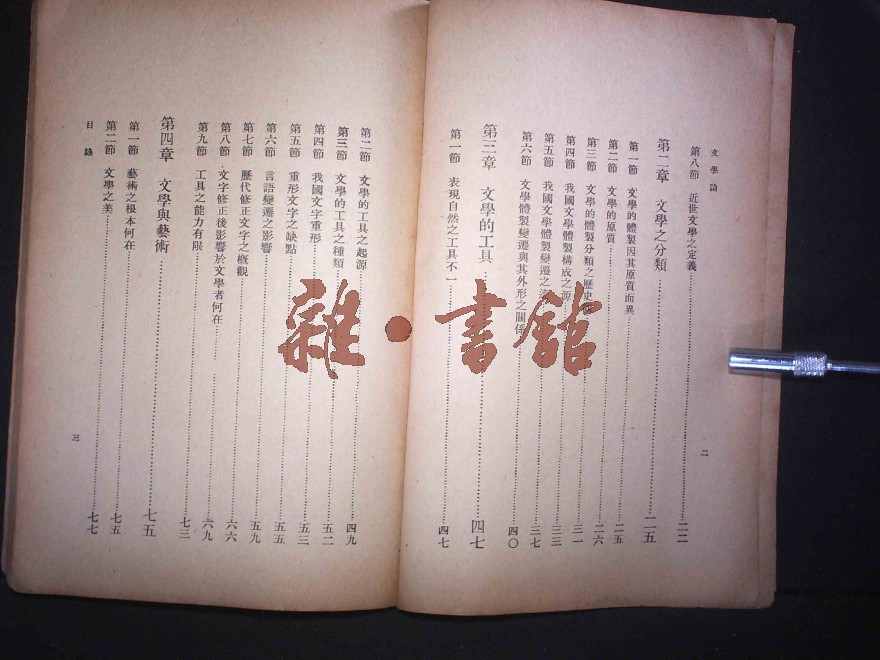 文學論
第八節 近世文學之定義 二二
第二章 文學之分類 二五
第一節 文學的體製因其原質而異 二五
第二節 文學的原質 二六
第三節 文學的體製分類之歷史 三一
第四節 我國文學體製構成之源 三三
第五節 我國文學體製變遷之 三七
第六節 文學體製變遷與其外形之關係 四〇
第三章 文學的工具 四七
第一節 表現自然之工具不一 四七
二
第二節 文學的工具之起源 四九
第三節 文學的工具之種類 五二
第四節 我國文字重形 五三
第五節 重形文字之缺點 五五
第六節 言語變遷之影響 五五
第七節 歷代修正文字之概觀 五九
第八節 文字修正後影響於文學者何在 六六
第九節 工具之能力有限 六九
第四章 文學與藝術 七五
第一節 藝術之根本何在 七五
第二節 文學之美 七七
目錄
三
雜·書館